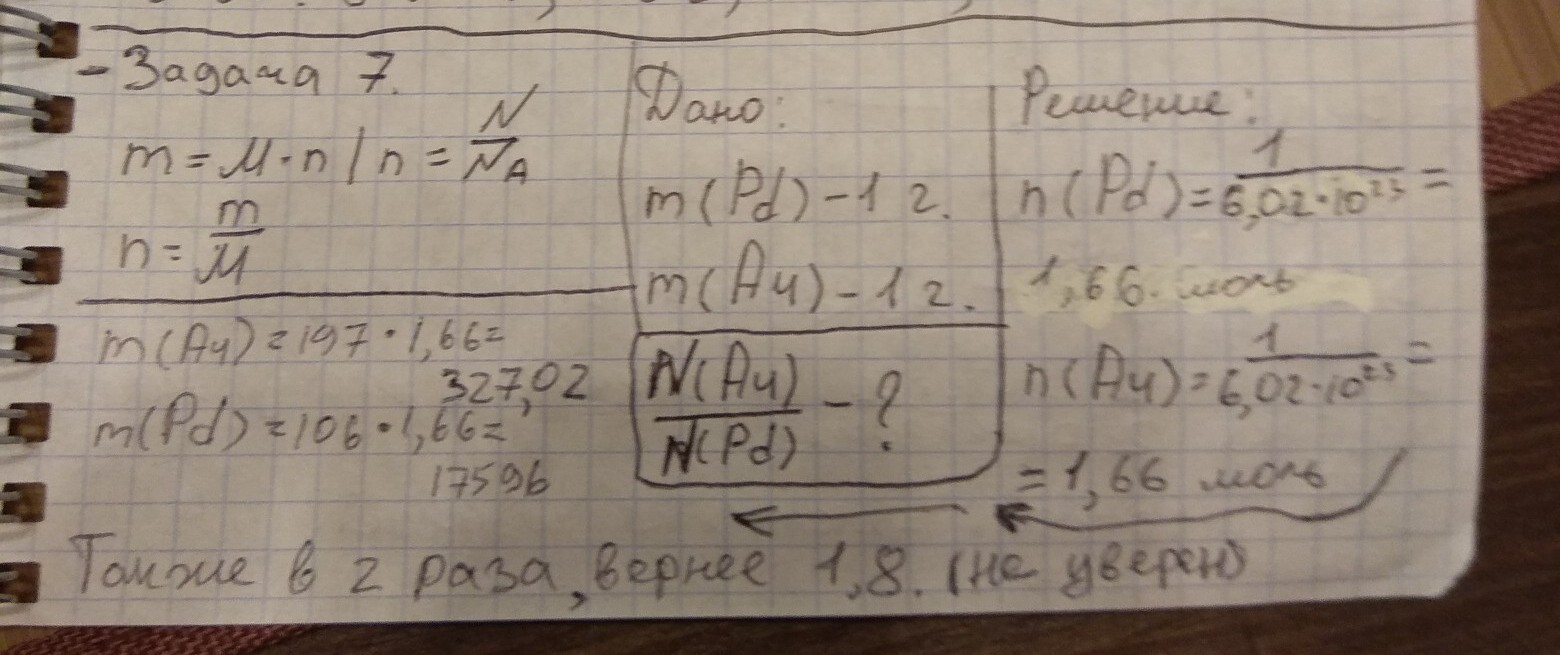 - Задача 7.
m = M · n / n = N/N_A
n = m/M
m(Au) = 197 · 1,66 =
327,02
m(Pd) = 106 · 1,66 =
17596
Дано:
m(Pd) - 1 г.
m(Au) - 1 г.
N(Au)/N(Pd) - ?
Решение:
n(Pd) = 1/6,02·10²³ =
1,66. моль
n(Au) = 1/6,02·10²³ =
= 1,66 моль
Также в 2 раза, вернее 1,8. (не уверен)